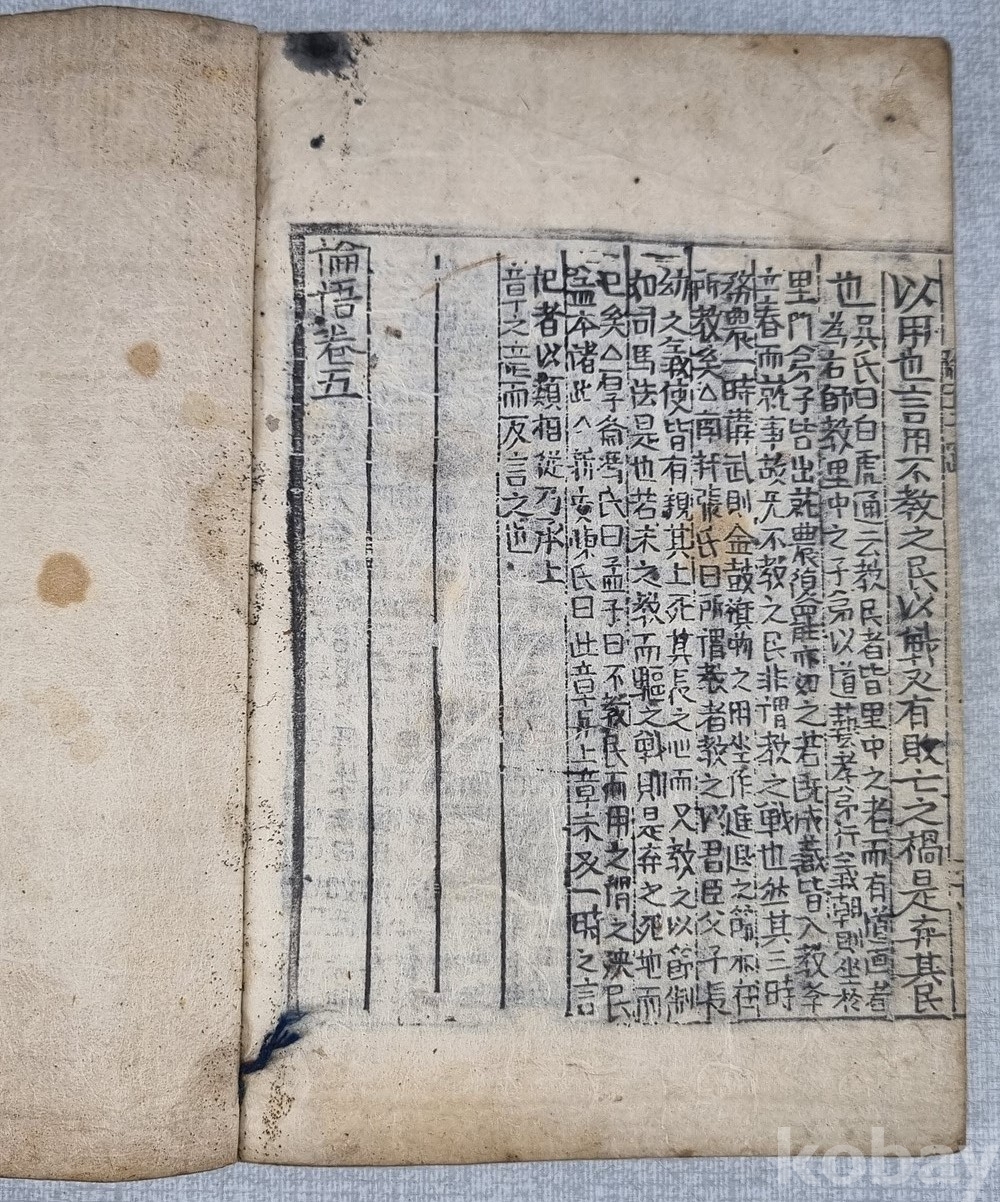 以用也言用不教之民以戰必有敗亡之禍是弃其民
也吳氏曰白虎通云教民者皆里中之老而有道画者
為右師教里中之子弟以道藝孝弟行義朝則坐於
里門弟子皆出就農復罷亦如之若既成藏皆入教學
立春而就事故无不教之民非謂教之戰也然其三時
務農一時講武則金鼓旗物之用坐作進退之節亦在
所教矣△南軒張氏曰所謂教者教之以君臣父子長
幼之義使皆有親其上死其長之心而又教之以節制
如司馬法是也若未之教而驅之戰則是弃之死地而
已矣△厚齋馮氏曰孟子曰不教民而用之謂之殃民
蓋本諸此△新安陳氏曰此章與上章亦又一時之言
記者以類相從乃承上
章之意而反言之也
論語卷五
kobay